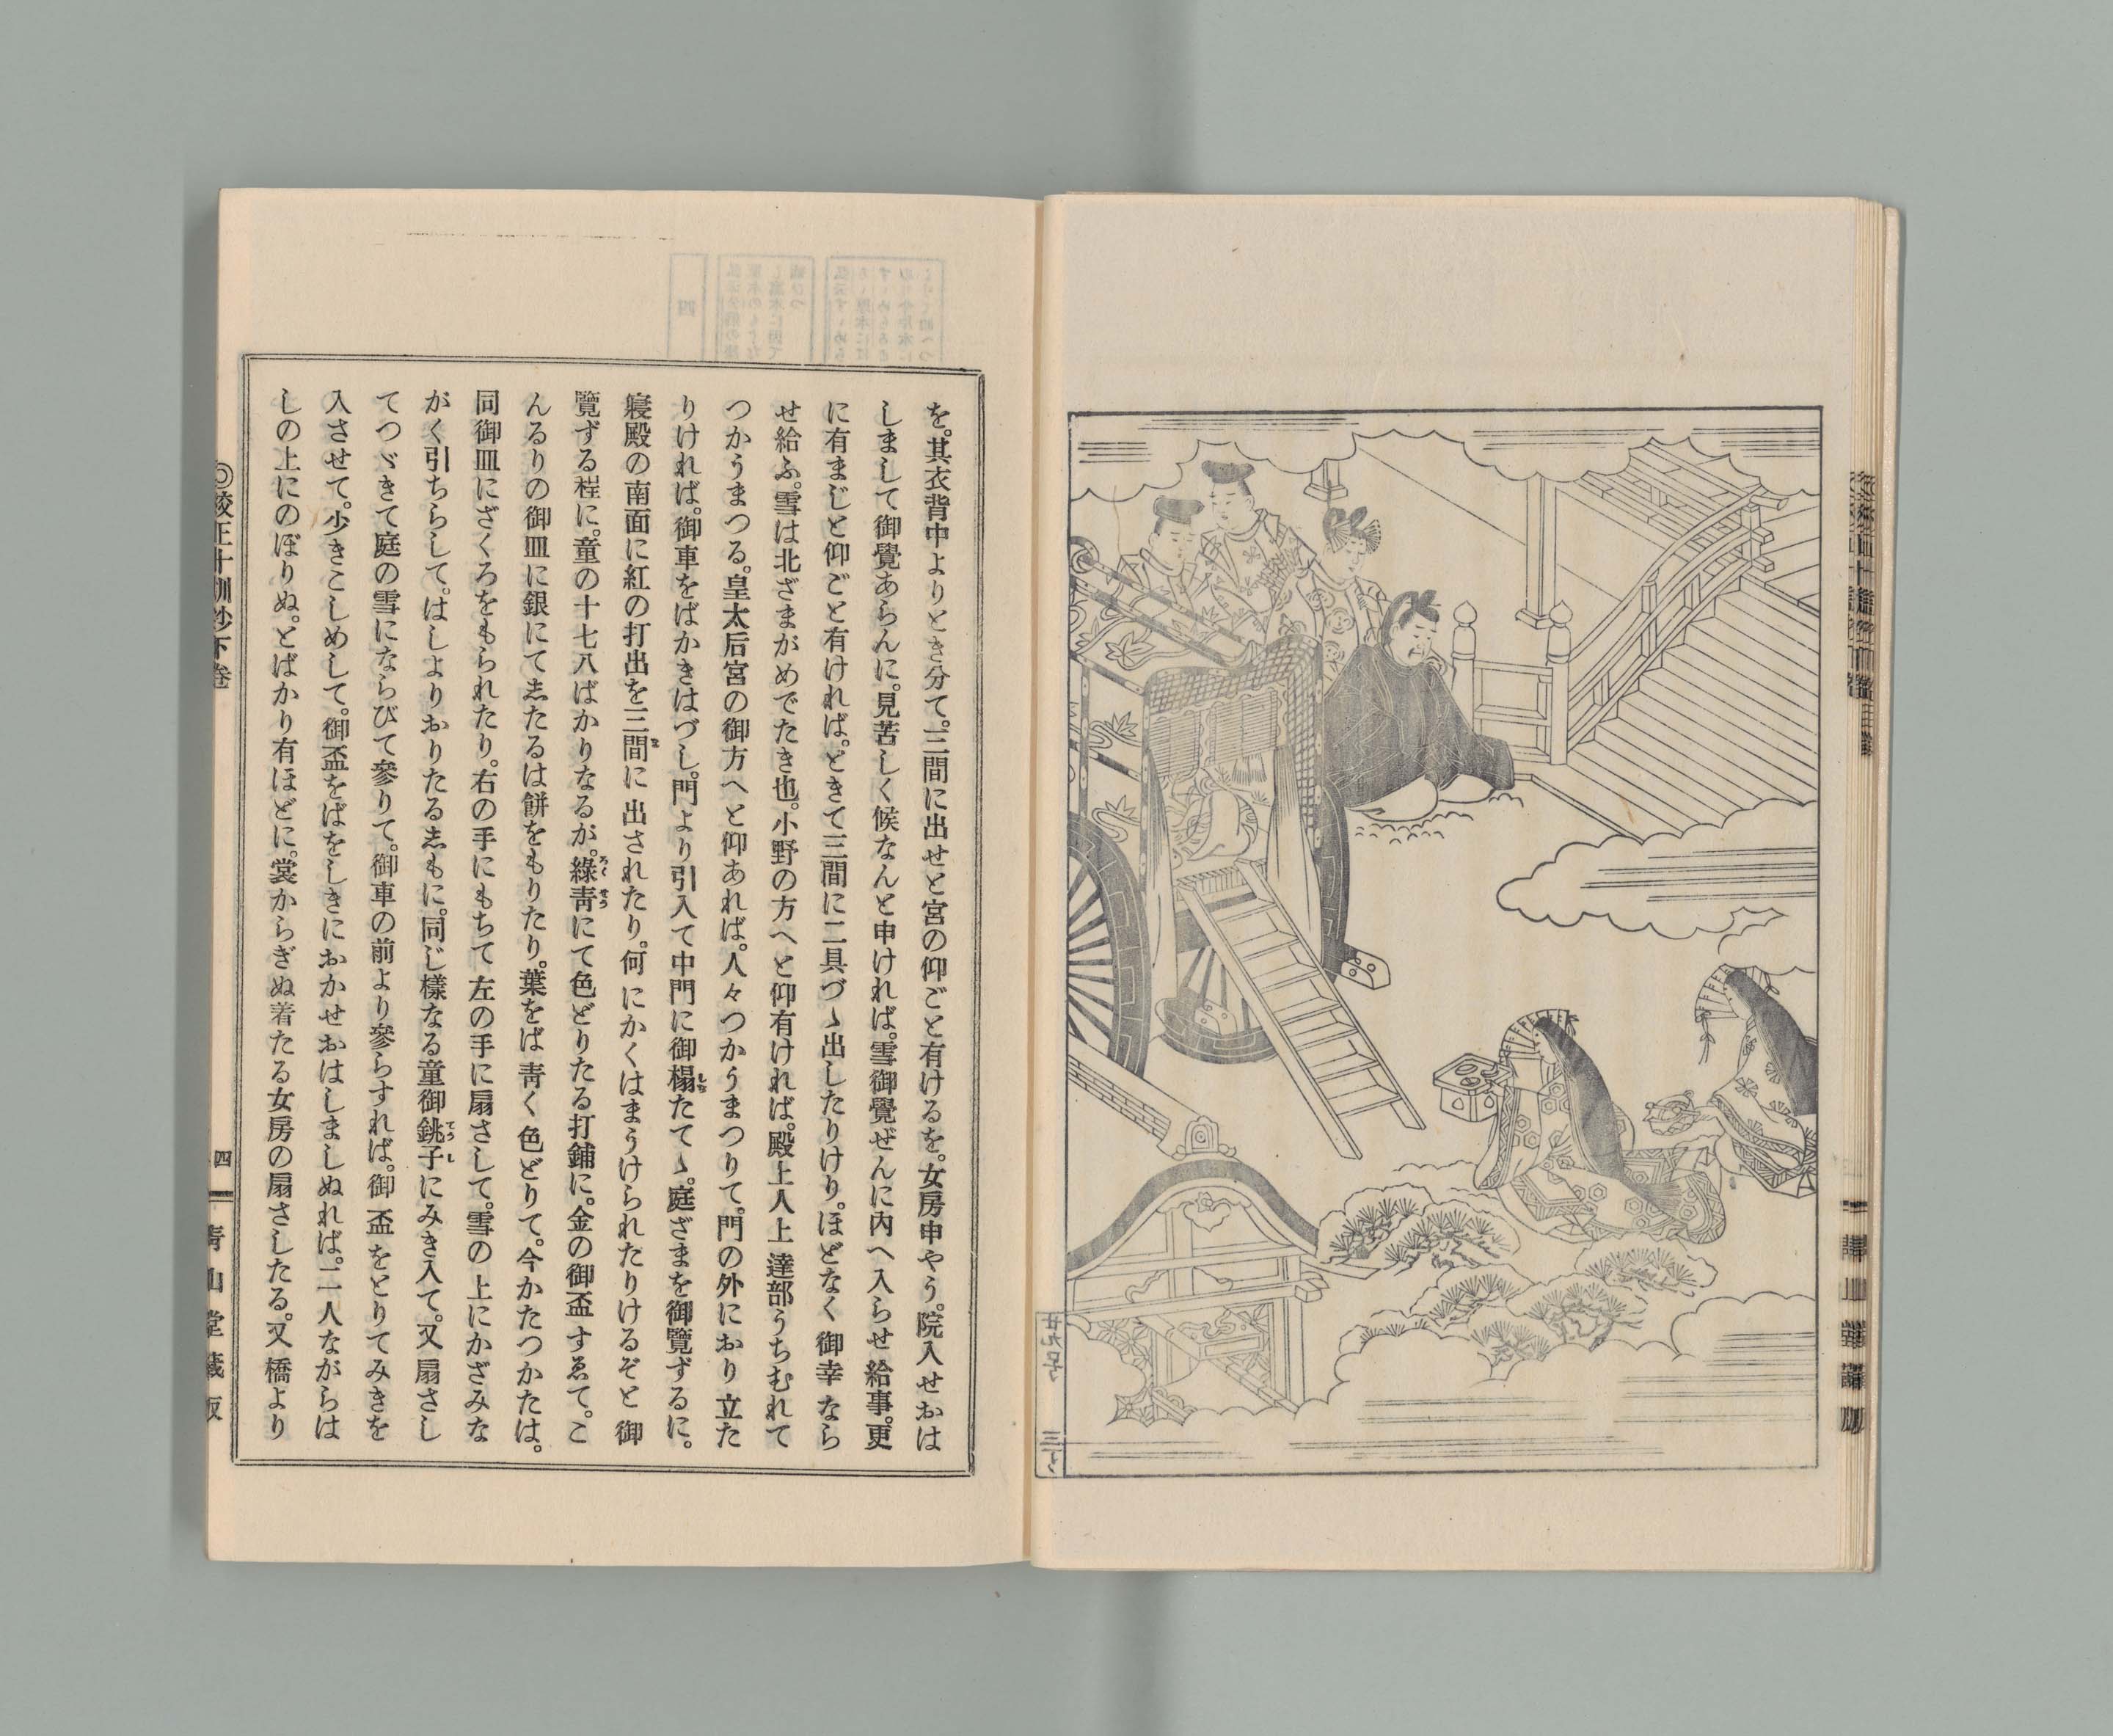 を。其衣背中よりとき分て。三間に出せと宮の仰ごと有けるを。女房申やう。院入せおは
しまして御覺あらんに。見苦しく候なんと申ければ。雪御覺ぜんに内へ入らせ給事。更
に有まじと仰ごと有ければ。ときて三間に二具づゝ出したりけり。ほどなく御幸なら
せ給ふ。雪は北ざまがめでたき也。小野の方へと仰有ければ。殿上人上達部うちむれて
つかうまつる。皇太后宮の御方へと仰あれば。人々つかうまつりて。門の外におり立た
りければ。御車をばかきはづし。門より引入て中門に御榻たてゝ。庭ざまを御覽ずるに。
寢殿の南面に紅の打出を三間に出されたり。何にかくはまうけられたりけるぞと御
覽ずる程に。童の十七八ばかりなるが。綠靑にて色どりたる打鋪に。金の御盃すゑて。こ
んるりの御皿に銀にてゑたるは餅をもりたり。葉をば靑く色どりて。今かたつかたは。
同御皿にざくろをもられたり。右の手にもちて左の手に扇さして。雪の上にかざみな
がく引ちらして。はしよりおりたるゑもに。同じ樣なる童御銚子にみき入て。又扇さし
てつゞきて庭の雪にならびて參りて。御車の前より參らすれば。御盃をとりてみきを
入させて。少きこしめして。御盃をばをしきにおかせおはしましぬれば。二人ながらは
しの上にのぼりぬ。とばかり有ほどに。裳からぎぬ着たる女房の扇さしたる。又橋より
◎校正十訓抄下卷
四
靑山堂藏版
廿九号